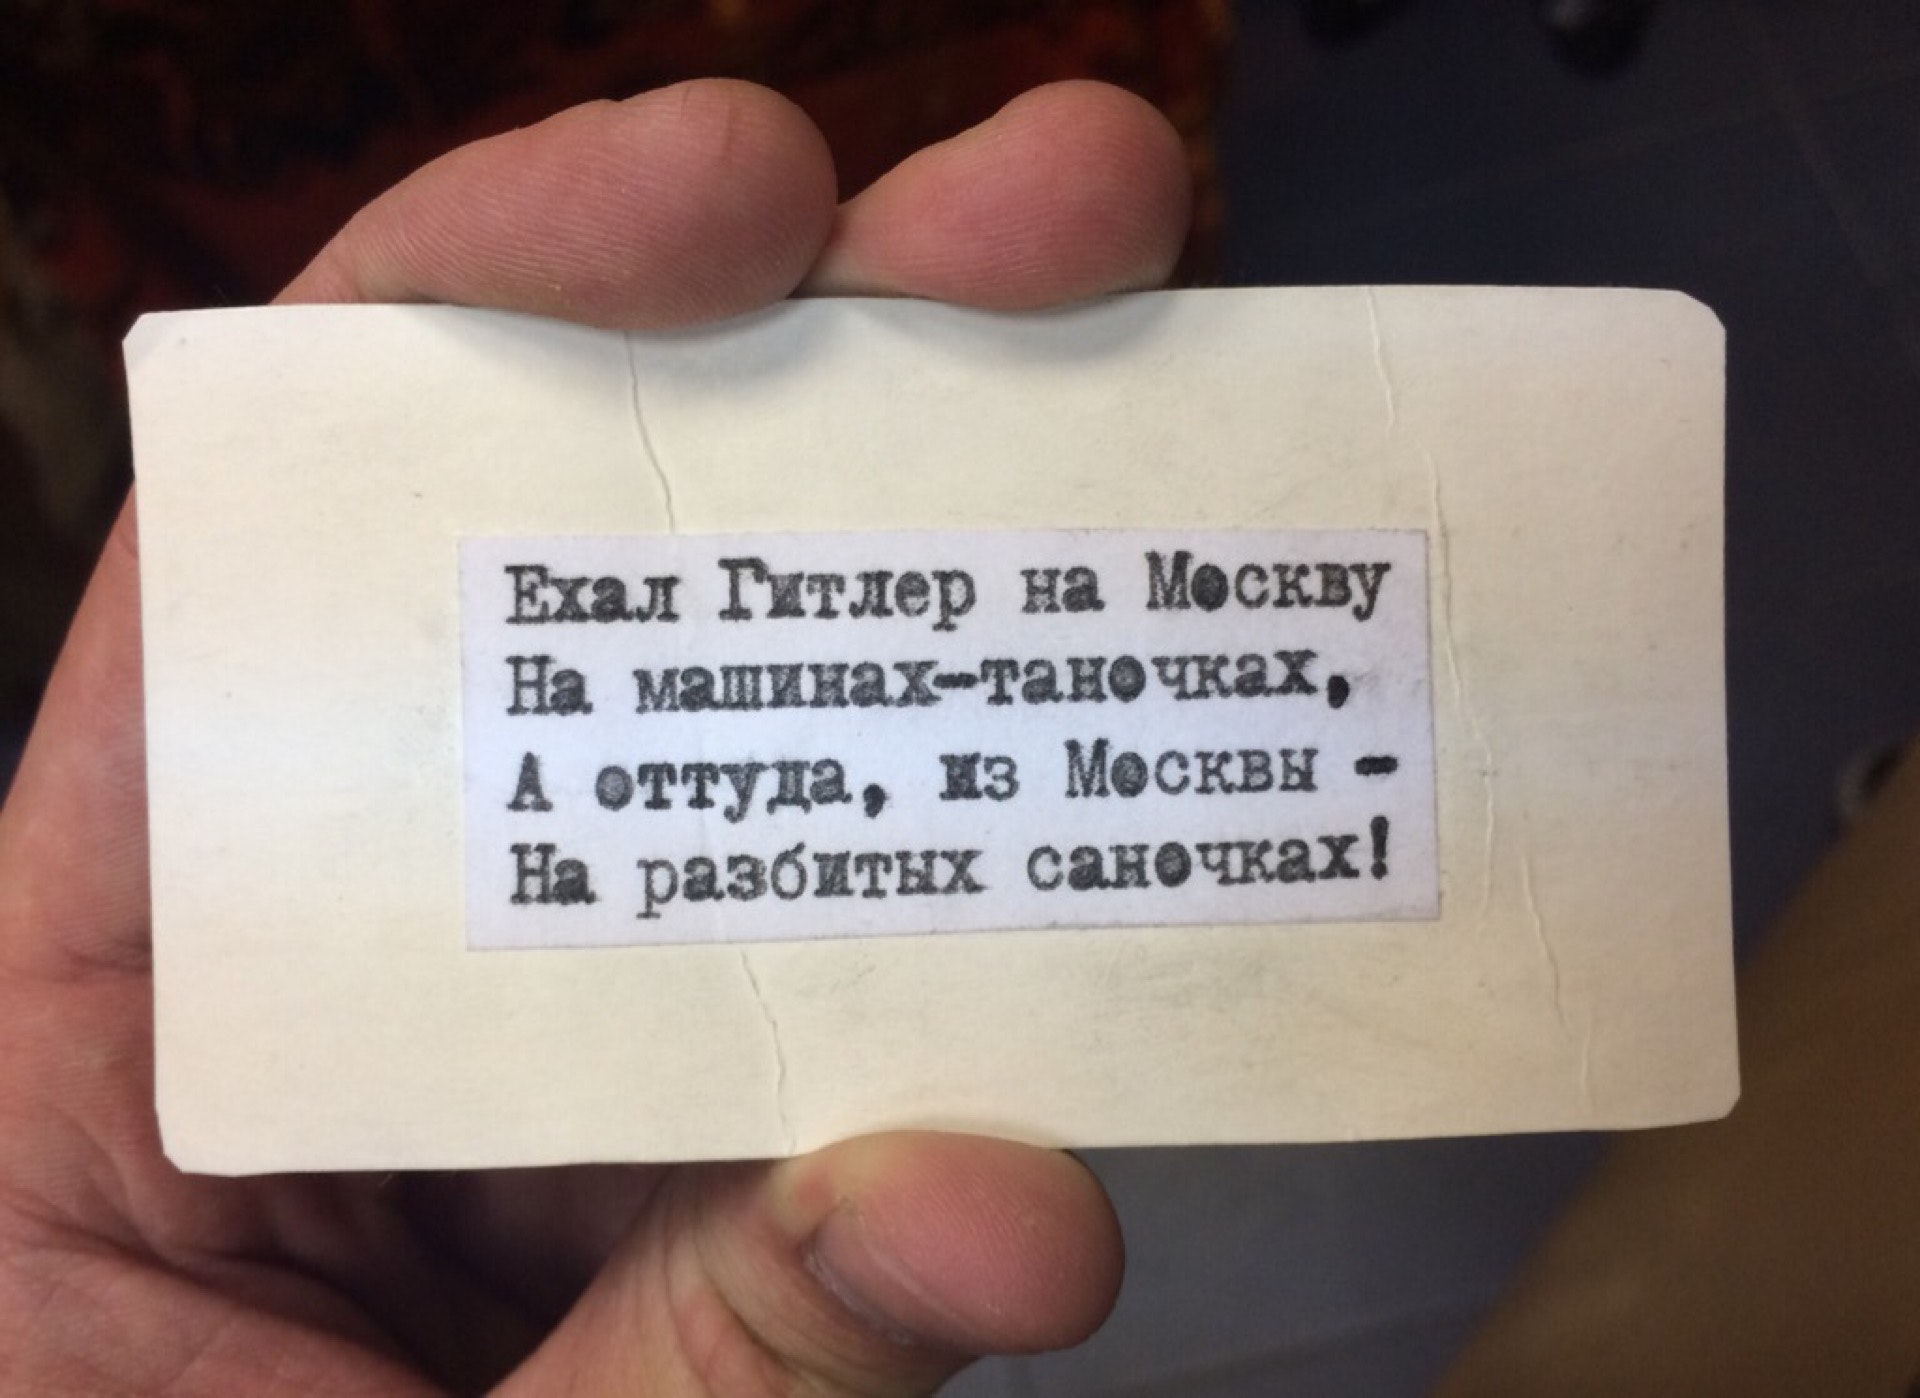 Ехал Гитлер на Москву
На машинах-таночках,
А оттуда, из Москвы -
На разбитых саночках!